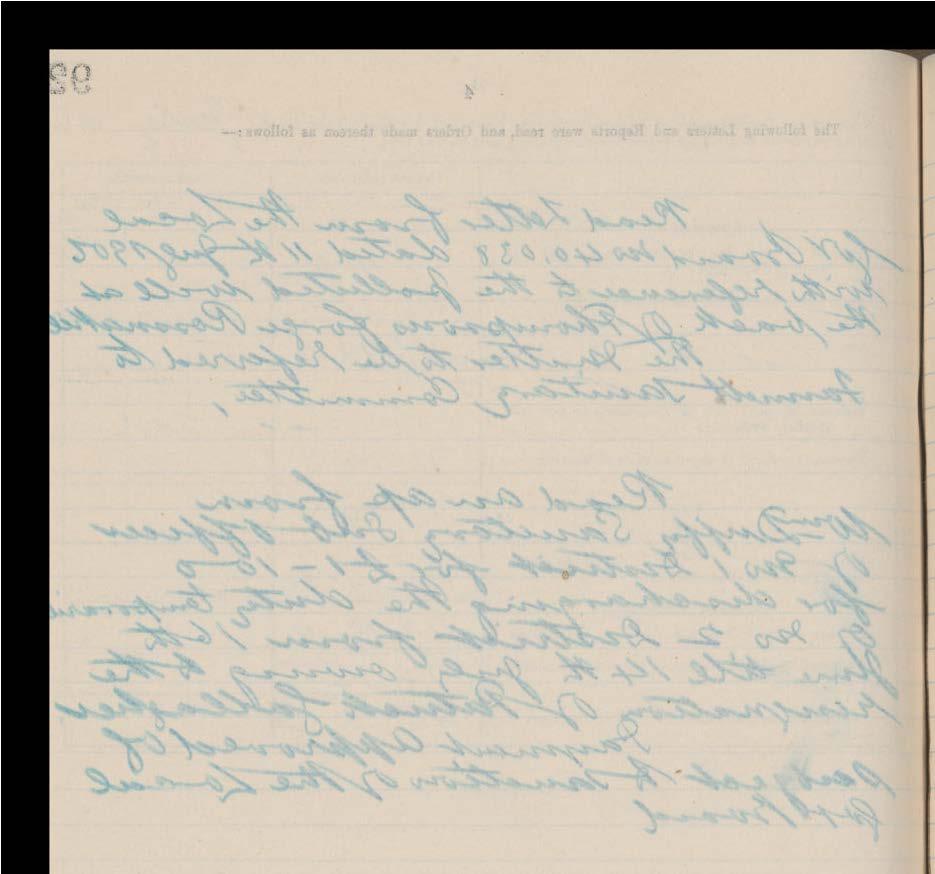 92
4
The following Letters and Reports were read, and Orders made thereon as follows:—
Read Letter from the Local
Govt Board No 40,038 dated 11th July 1902
with reference to the polluted well at
the back of Thompsons forge
the matter to be referred to
Fannett Sanitary Committee,
Read an from
Wm Duffy Sanitary Sub Officer
No 1 District for £1-10/-
for discharging the duty
No 2 District from 6th
June till 14th July owing to the
resignation of Patrick Gallagher
Payment approved of
subject to sanction of the Local
Govt Board